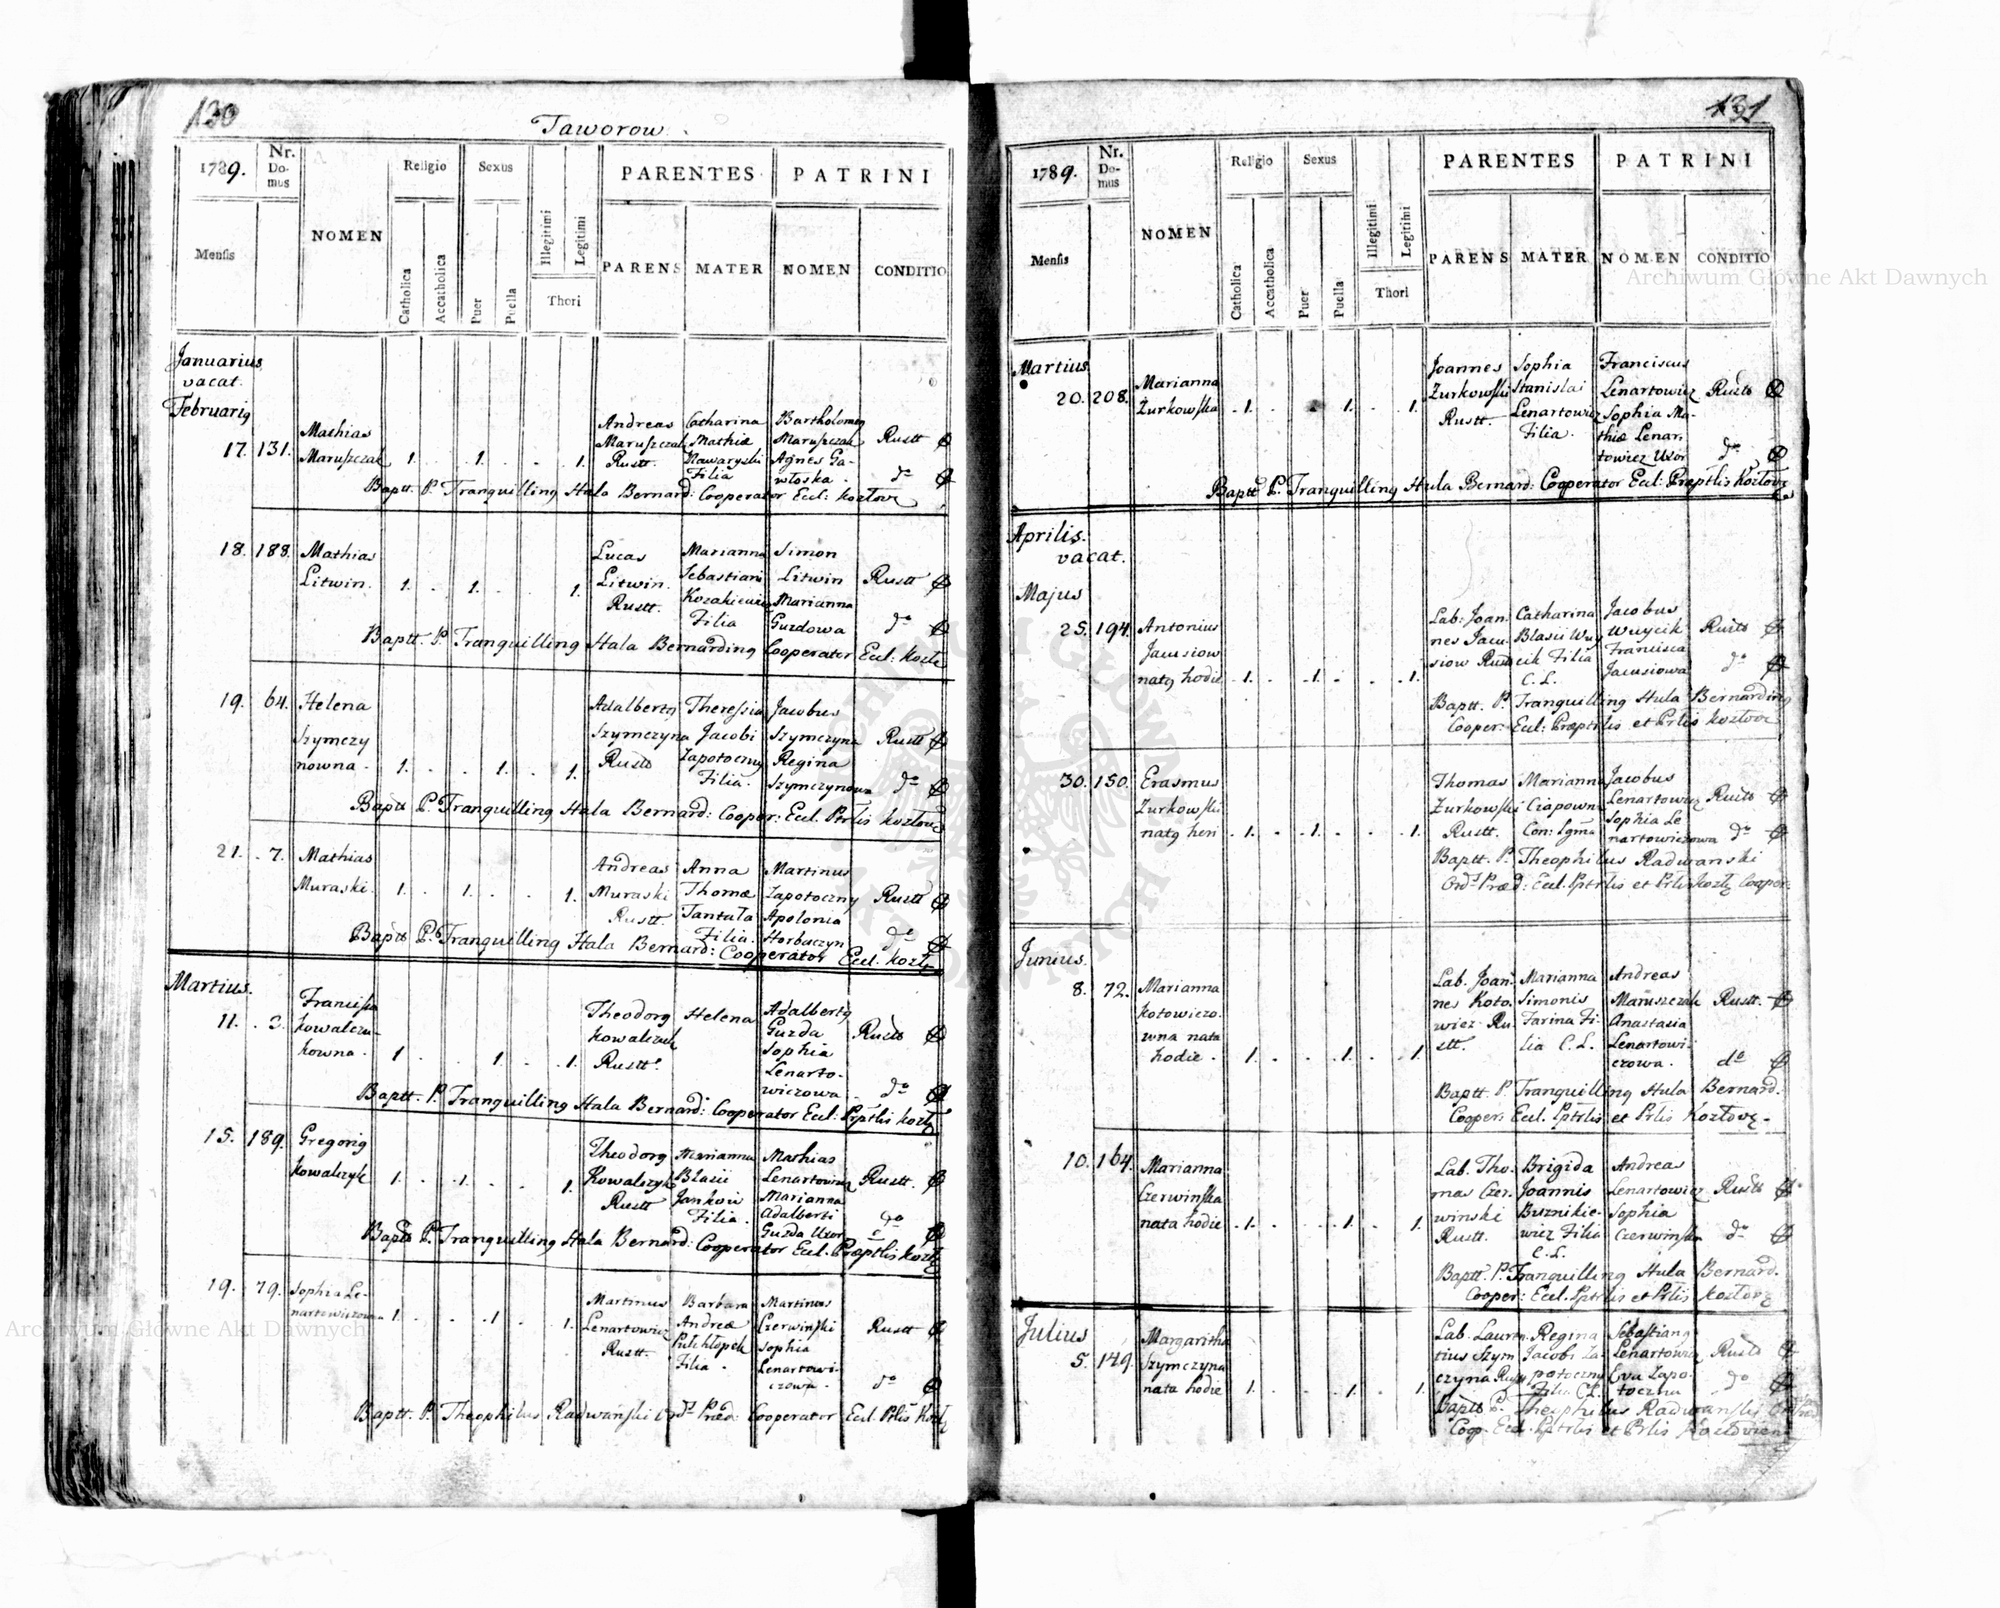 130
Taworow
1789.
Nr. Domus
NOMEN
Religio
Sexus
Illegitimi
Legitimi
PARENTES
PATRINI
Mensis
Catholica
Accatholica
Puer
Puella
Thori
PARENS
MATER
NOMEN
CONDITIO
Januarius
vacat.
Februarig
17. 131. Mathias Maruszczak 1. 1. 1.
Andreas Maruszczak Rustt.
Catharina Mathiæ Nawaryski Filia
Bartholomeg Maruszczak Agnes Ga-
włoska.
Rustt
do
Baptt. P. Tranquilling Hala Bernard: Cooperator Eccl: Kozłow
18. 188. Mathias Litwin. 1. 1. 1.
Lucas Litwin. Rustt.
Marianna Sebastiani Filia
Simon Litwin Marianna Guzdowa
Rustt
do
Baptt. P. Tranquilling Hala Bernarding Cooperator Eccl: Kozł
19. 64. Helena Szymczy
nowna. 1. 1. 1.
Adalbertg Szymczyna Rustt
Theressia Jacobi Zapoteczny Filia.
Jacobus Szymczyna Regina Szymczynowa
Rustt
do
Baptt P. Tranquilling Hala Bernard: Cooper: Eccl. Prlis Kozłow
21. 7. Mathias Muraski. 1. 1. 1.
Andreas Muraski Rustt
Anna Thomæ Tantuła Filia.
Martinus Zapotoczny Apolonia Horbaczyn
Rustt
do
Baptt P. Tranquilling Hala Bernard: Cooperator Eccl. Kozł
Martius.
11. 3. Francisca Kowalczu-
kowna. 1 1. 1.
Theodorg Kowalczuk Rustt.
Helena
Adalbertg Guzda Sophia Lenarto-
wiczowa
Rustt
do
Baptt. P. Tranquilling Hala Bernard: Cooperator Eccl. Kozł
15. 189. Gregorig Kowalczyk 1. 1. 1.
Theodorg Kowalczyk Rustt
Marianna Blasii Jankow Filia.
Mathias Lenartowicz Marianna Adalberti Guzda Uxor
Rustt.
do
Baptt P. Tranquilling Hala Bernard: Cooperator Eccl. Præptlis Kozł
19. 79. Sophia Le-
nartowiczowna 1. 1. 1.
Martinus Lenartowicz Rustt.
Barbara Andreæ Filia.
Martinus Czerwinski Sophia Lenartowi-
czowa.
Rustt
do
Baptt. P. Theophilus Radwański Ord: Præd: Cooperator Eccl. Prlis Kozł
131
1789.
Nr. Domus
NOMEN
Religio
Sexus
Illegitimi
Legitimi
PARENTES
PATRINI
Mensis
Catholica
Accatholica
Puer
Puella
Thori
PARENS
MATER
NOMEN
CONDITIO
Martius
20. 208. Marianna Żurkowska 1. 1. 1.
Joannes Żurkowski Rustt.
Sophia Stanislai Lenartowicz Filia.
Franciscus Lenartowicz Sophia Ma-
thiæ Lenar
towicz Uxor
Rustt
do
Baptt P. Tranquilling Hala Bernard: Cooperator Eccl: Præptlis Kozłow
Aprilis.
vacat.
Majus
25. 194. Antonius Jacusiow natg hodie 1. 1. 1.
Lab: Joan
nes Jacu-
siow Rustt
Catharina Blasii Wuy
cik Filia C. L.
Jacobus Wuycik Francisca Jacusiowa
Rustt
do
Baptt. P. Tranquilling Hala Bernarding
Cooper: Eccl: Præptrlis et Prlis Kozłow
30. 150. Erasmus Żurkowski natg heri 1. 1. 1.
Thomas Żurkowski Rustt.
Marianna Czapowna
Jacobus Lenartowicz Sophia Le
nartowiczowa
Rustt
do
Baptt. P. Theophilus Radwanski
Ord: Præd: Eccl. Pptrlis et Prlis Kozł Cooper:
Junius.
8. 72. Marianna Kotowiczo-
wna nata hodie. 1. 1. 1.
Lab. Joan-
nes Koto-
wicz Ru
stt.
Marianna Simonis Farina Fi-
lia C. L.
Andreas Maruszczak Anastasia Lenartowi-
czowa.
Rustt.
do
Baptt. P. Tranquilling Hala Bernard.
Cooper: Eccl. Pptrlis et Prlis Kozłow
10. 164. Marianna Czerwinska nata hodie 1. 1. 1.
Lab. Tho-
mas Czer-
winski Rustt.
Brigida Joannis Buznikie-
wicz Filia C. L.
Andreas Lenartowicz Sophia Czerwinska
Rustt
do
Baptt. P. Tranquilling Hula Bernard.
Cooper: Eccl. Pptrlis et Prlis Kozłow
Julius
5. 149. Margaritha Szymczyna nata hodie 1. 1. 1.
Lab. Lauren-
tius Szym
czyna Rustt
Regina Jacobi Za-
potoczny Filia C.L.
Sebastiang Lenartowicz Eva Zapo-
toczna
Rustt
do
Baptt P. Theophilus Radwanski
Coop. Eccl. Pptrlis et Prlis
Archiwum Główne Akt Dawnych
Archiwum Główne Akt Dawnych